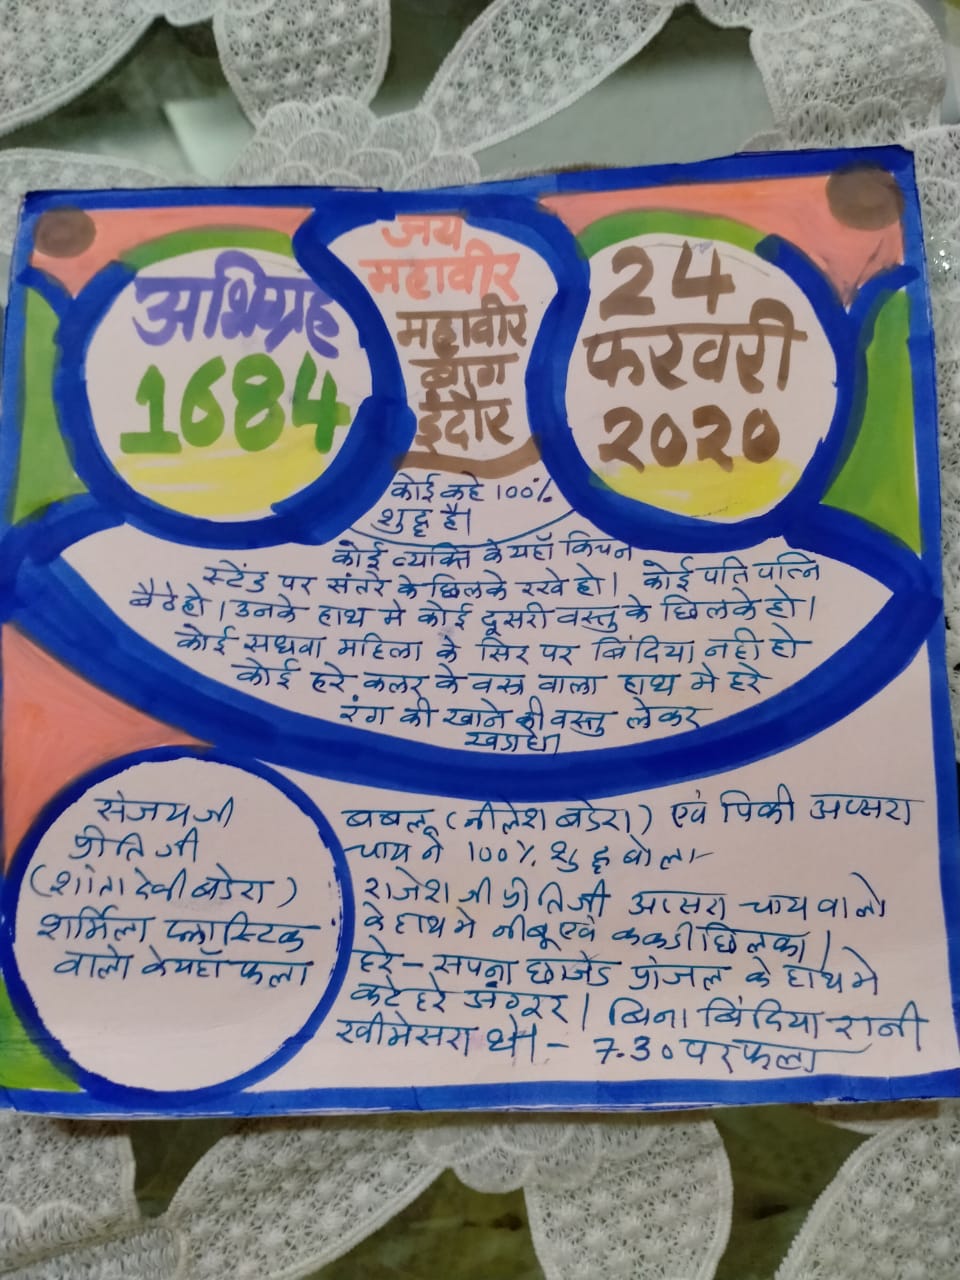 अभिग्रह
1684
जय
महावीर
महावीर
बाग
इंदौर
24
फरवरी
2020
कोई कहे 100%
शुद्ध है।
कोई व्यक्ति के यहाँ किचन
स्टेंड पर संतरे के छिलके रखे हो। कोई पति पत्नि
बैठे हो। उनके हाथ मे कोई दूसरी वस्तु के छिलके हो।
कोई सधवा महिला के सिर पर बिंदिया नही हो
कोई हरे कलर के वस्त्र वाला हाथ मे हरे
रंग की खाने की वस्तु लेकर
संजय जी
प्रीति जी
(शांता देवी बडेरा)
शर्मिला प्लास्टिक
वाले के यहाँ फला
बबलू (नीलेश बडेरा) एवं पिंकी अप्सरा
चाय ने 100% शुद्ध बोला
राजेश जी प्रीति जी अप्सरा चाय वाले
के हाथ मे नीबू एवं ककडी छिलका।
हरे - सपना छाजेड प्रांजल के हाथ मे
कटे हरे अंगूर। बिना बिंदिया रानी
खीमेसरा थे। - 7.30 पर फला